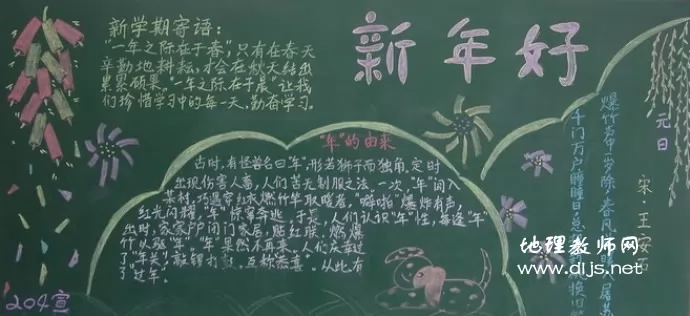 新学期寄语：
“一年之际在于春”，只有在春天
辛勤地耕耘，才会在秋天结出
累累硕果。“一年之际在于晨”让我
们珍惜学习中的每一天，勤奋学习。
新年好
“年”的由来
古时，有怪兽名曰“年”，形若狮子而独角，定时
出现伤害人畜，人们苦无制服之法。一次“年”闯入
村，巧遇有人燃竹竿取暖者，“噼啪”爆炸有声，
红光闪耀，“年”惊窜奔逃。于是，人们认识“年”性，每逢“年”
出时，家家户户闭门家居，贴红联，燃爆
竹以驱“年”，“年”果然不再来。人们庆幸过
了“年关”，敲锣打鼓，互称恭喜。从此有
了“过年”。
元日
宋·王安石
爆竹声中一岁除，春风 屠苏
千门万户曈曈日，总 换旧
204宣
地理教师网
www.dljs.net